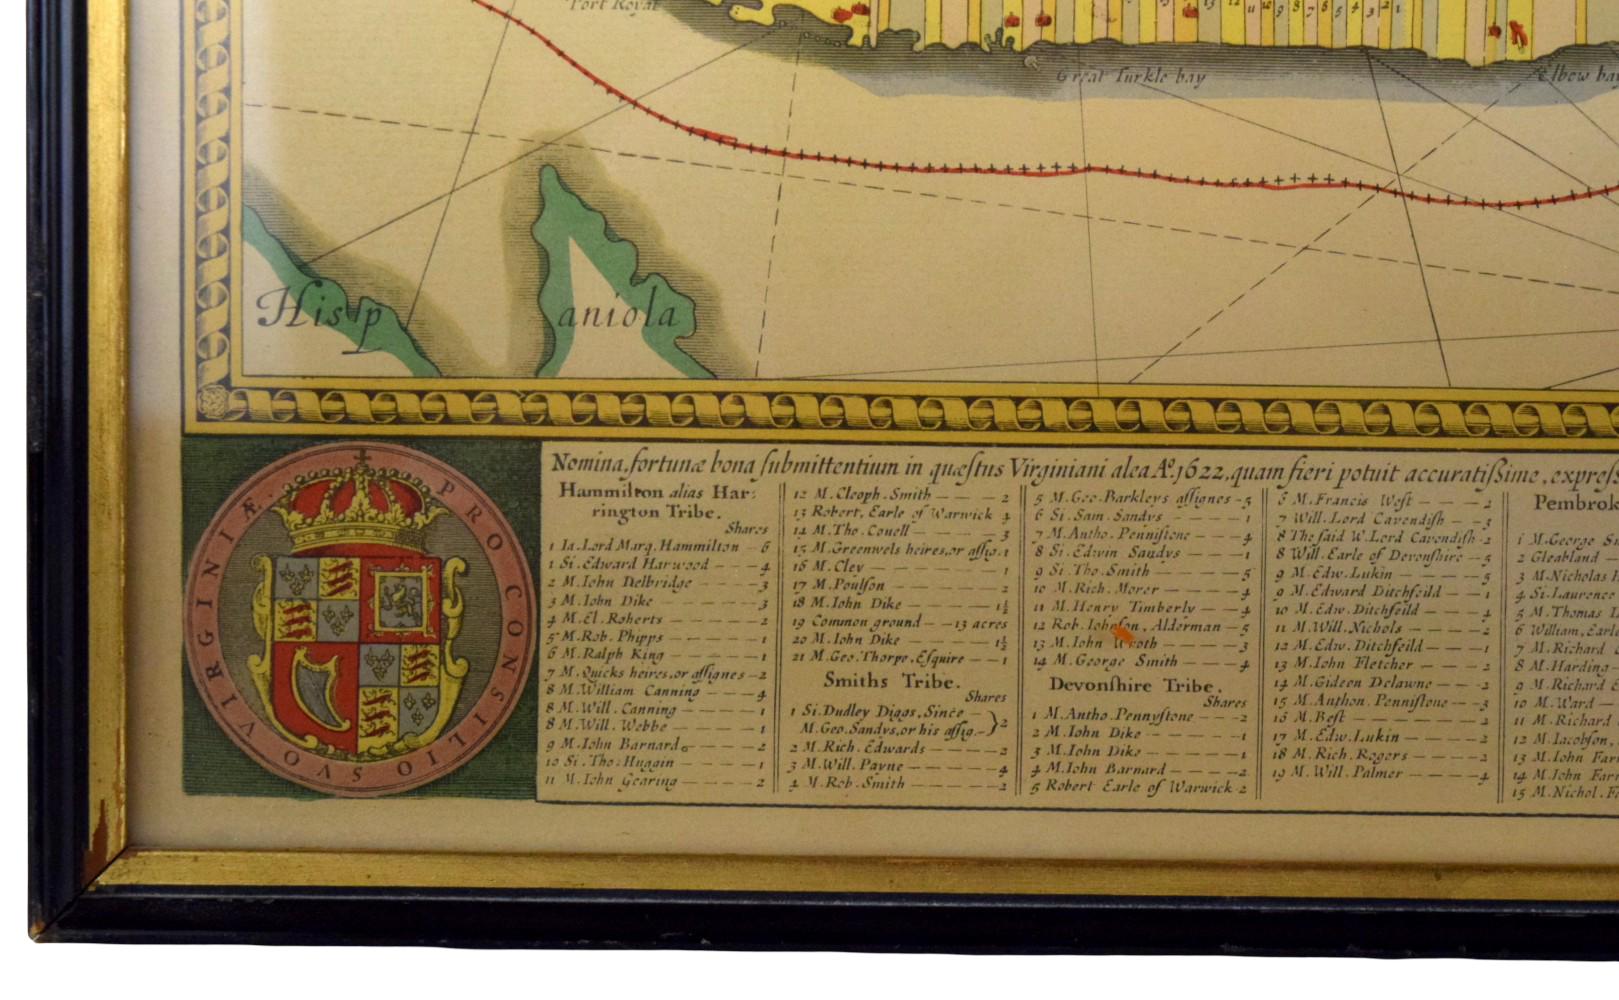 Port Royal
13 12 11 10 9 8 7 6 5 4 3 2 1
Great Turkle bay
Elbow bay
Hisp aniola
PRO CONSILIO SVO VIRGINIÆ.
Nomina, fortunæ bona ſubmittentium in quæſtus Virginiani alea Aº. 1622, quam fieri potuit accuratißime, expreſs
Hammilton alias Har:
rington Tribe.
Shares
1 Ia. Lord Marq. Hammilton – 6
1 Si. Edward Harwood – – – 4
2 M. Iohn Delbridge – – – 3
3 M. Iohn Dike – – – – 3
4 M. El. Roberts – – – – 2
5 M. Rob. Phipps – – – – 1
6 M. Ralph King – – – – 1
7 M. Quicks heires, or aſſignes – 2
8 M. William Canning – – – 4
8 M. Will. Canning – – – – 1
8 M. Will. Webbe – – – – 1
9 M. Iohn Barnard – – – – 2
10 Si. Tho. Huggin – – – – 1
11 M. Iohn Gearing – – – – 2
12 M. Cleoph. Smith – – – 2
13 Robert, Earle of Warwick 4
14 M. Tho. Couell – – – – 3
15 M. Greenwels heires, or aſſig. 1
16 M. Cley – – – – 1
17 M. Poulſon – – – – 2
18 M. Iohn Dike – – – – 1½
19 Common ground – – 13 acres
20 M. Iohn Dike – – – – 1½
21 M. Geo. Thorpe, Eſquire – – 1
Smiths Tribe.
Shares
1 Si. Dudley Diggs, Since – } 2
M. Geo. Sandys, or his aſſig. –
2 M. Rich. Edwards – – – – 2
3 M. Will. Payne – – – – 4
4 M. Rob. Smith – – – – 2
5 M. Geo. Barkleys aſſignes – 5
6 Si. Sam. Sandys – – – – 1
7 M. Antho. Penniſtone – – – 4
8 Si. Edwin Sandys – – – – 1
9 Si. Tho. Smith – – – – 5
10 M. Rich. Morer – – – – 4
11 M. Henry Timberly – – – 4
12 Rob. Iohnſon, Alderman – 5
13 M. Iohn Wroth – – – – 3
14 M. George Smith – – – – 4
Devonſhire Tribe.
Shares
1 M. Antho. Pennyſtone – – – 2
2 M. Iohn Dike – – – – 1
3 M. Iohn Dike – – – – 1
4 M. Iohn Barnard – – – – 2
5 Robert Earle of Warwick 2
6 M. Francis Weſt – – – – 2
7 Will. Lord Cavendiſh – – 3
8 The ſaid W. Lord Cavendiſh 2
8 Will. Earle of Devonſhire – 5
9 M. Edw. Lukin – – – – 5
9 M. Edward Ditchfeild – – 1
10 M. Edw. Ditchfeild – – – 4
11 M. Will. Nichols – – – – 2
12 M. Edw. Ditchfeild – – – 1
13 M. Iohn Fletcher – – – – 2
14 M. Gideon Delawne – – – 2
15 M. Anthon. Penniſtone – – 3
16 M. Beſt – – – – 2
17 M. Edw. Lukin – – – – 2
18 M. Rich. Rogers – – – – 2
19 M. Will. Palmer – – – – 4
Pembrok
1 M. George Sm
2 Gleabland –
3 M. Nicholas H
4 Si. Laurence
5 M. Thomas I
6 William, Earl
7 M. Richard
8 M. Harding
9 M. Richard E
10 M. Ward –
11 M. Richard
12 M. Iacobſon,
13 M. Iohn Farr
14 M. Iohn Farr
15 M. Nichol. F